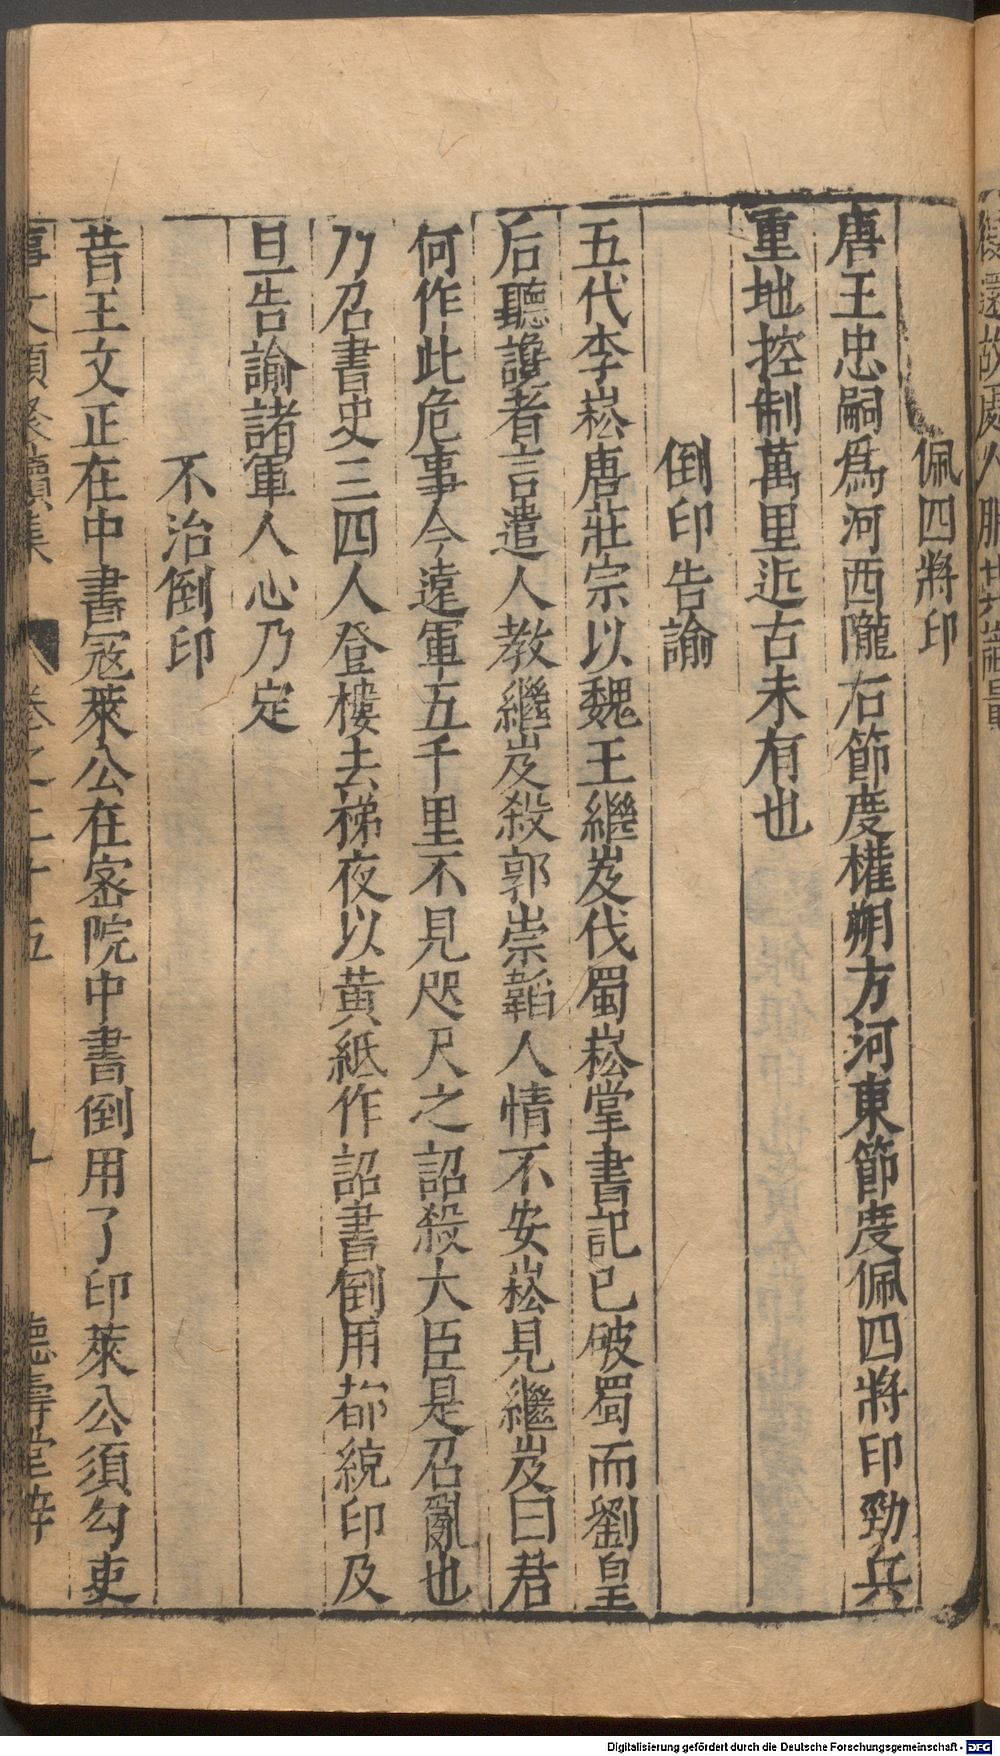 佩四將印
唐王忠嗣爲河西隴右節度權朔方河東節度佩四將印勁兵
重地控制萬里近古未有也
倒印告諭
五代李崧唐莊宗以魏王繼岌伐蜀崧掌書記已破蜀而劉皇
后聽讒者言遣人教繼岌殺郭崇韜人情不安崧見繼岌曰君
何作此危事今遠軍五千里不見咫尺之詔殺大臣是召亂也
乃召書史三四人登樓去梯夜以黄紙作詔書倒用都統印及
旦告諭諸軍人心乃定
不治倒印
昔王文正在中書寇萊公在宻院中書倒用了印萊公須勾吏
事文類聚續集 卷之二十五 九 德壽堂梓
Digitalisierung gefördert durch die Deutsche Forschungsgemeinschaft - DFG